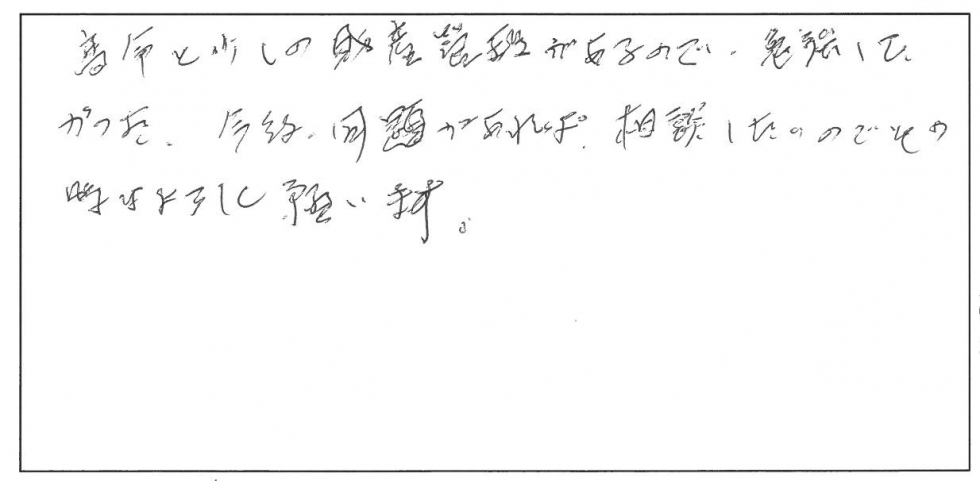 と少しの財産があるので、勉強した
かった。今後、問題があれば、相談したいのでその
時はよろしく願います。